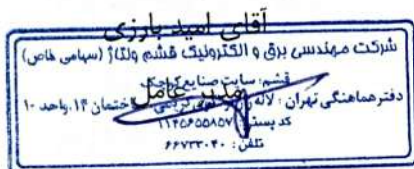 آقای امید بارزی
شرکت مهندسی برق و الکترونیک قشم ولتاژ (سهامی خاص)
قشم: سایت صنایع کوچک
مدیر عامل
دفتر هماهنگی تهران: لاله زار ساختمان ۱۴، واحد ۱۰
کد پستی: ۱۱۴۵۶۵۵۸۵۷
تلفن: ۶۶۷۳۳۰۴۰